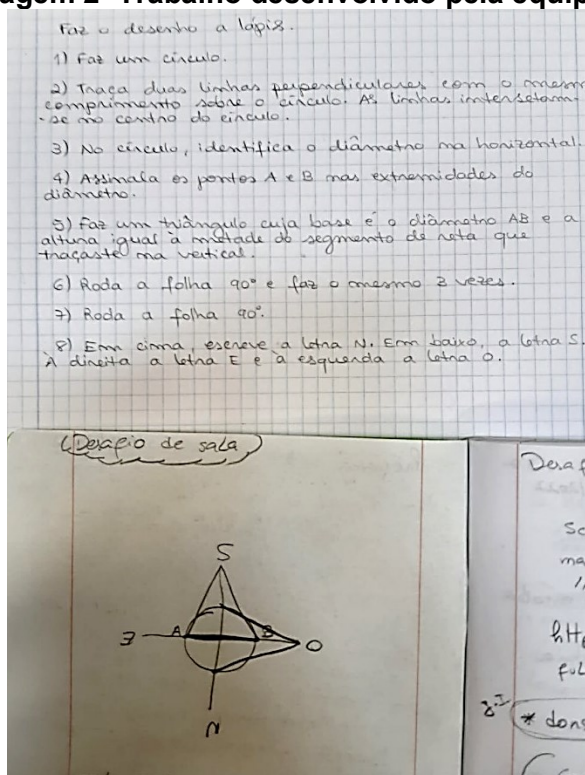 Imagem 2- Trabalho desenvolvido pela equip
Faz o desenho a lápis.
1) Faz um círculo.
2) Traça duas linhas perpendiculares com o mesm
comprimento sobre o círculo. As linhas intersetam-
-se no centro do círculo.
3) No círculo, identifica o diâmetro na horizontal.
4) Assinala os pontos A e B nas extremidades do
diâmetro.
5) Faz um triângulo cuja base é o diâmetro AB e a
altura igual à metade do segmento de reta que
traçaste na vertical.
6) Roda a folha 90° e faz o mesmo 2 vezes.
7) Roda a folha 90°.
8) Em cima, escreve a letra N. Em baixo, a letra S.
À direita a letra E e à esquerda a letra O.
(Desafio de sala)
Desaf
S
A B
E O
N
ma
ful
* dons